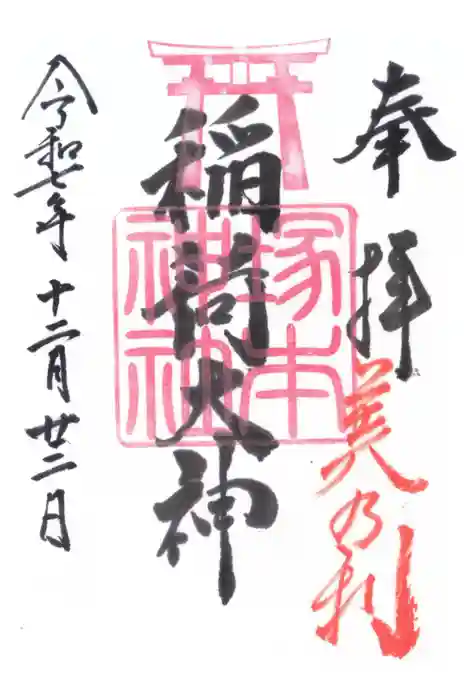 奉拝
美乃利
稲荷大神
塚本
神社
令和七年十二月廿二日